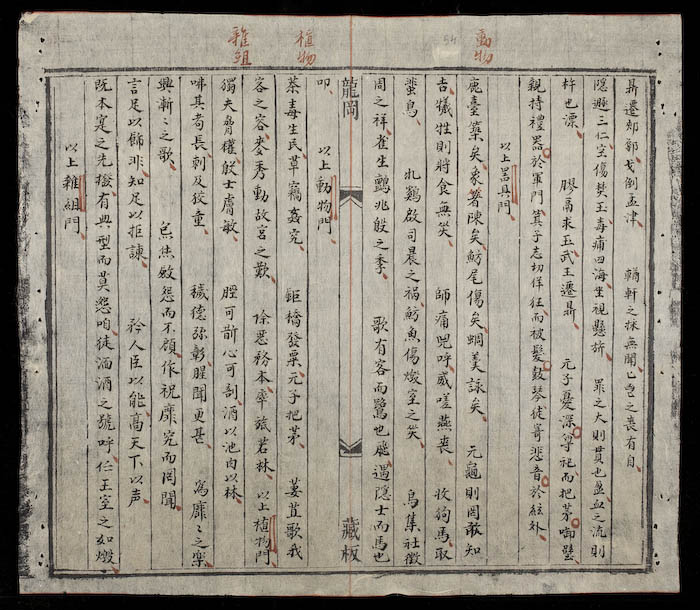 動物
54
植物
雜組
鼎遷郊鄏戈倒孟津　輶軒之採無聞之喪有自
隱避三仁空傷焚玉毒痡四海坐視懸旂　罪之大則貫也盈血之流則
杵也漂　膠鬲求玉武王遷鼎　元子憂深祀而把茅啣璧
親持禮器於軍門箕子志切佯狂而被髮鼓琴徒寄悲音於絃外
以上器具門
鹿臺築矣象箸陳矣魴尾傷矣蜩羹詠矣　元龜則罔敢知
吉犧牲則將食無災　師痛吧呼威嗟燕喪　牧馬取
蜚鳥　牝鷄啟司晨之禍魴魚傷燬室之災　烏集社徵
周之祥雀生鸇兆殷之季　歌有客而鷺也飛遇隱士而馬也
龍岡　藏板
叩　以上動物門
荼毒生民草竊姦宄　鉅橋發粟元子把茅　萋苴歌我
客之容麥秀動故宮之歎　除惡務本率旅若林　以上植物門
獨夫脅權殷士膚敏　脛可斮心可剖酒以池肉以林
咈其耇長刺及狡童　穢德弥彰腥聞更甚　寫靡々之樂
興漸々之歌　炰烋斂怨而不顧作祝靡究而罔聞
言足以飾非知足以拒諫　矜人臣以能高天下以声
既本寔之先撥有典型而莫怨咱徒湎酒之號呼伫王室之如燬
以上雜組門